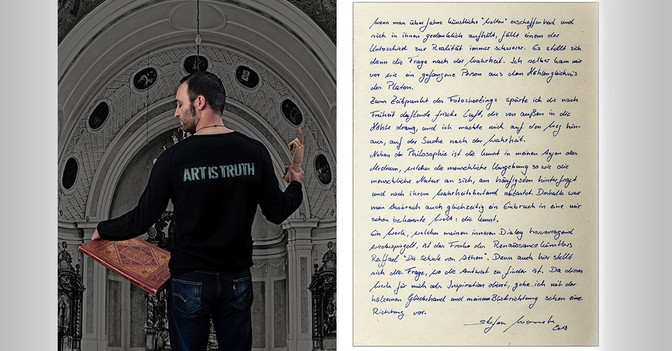 ART IS TRUTH
Wenn man über Jahre künstliche "Welten" erschaffen hat und
sich in ihnen gedanklich aufhält, fällt einem der
Unterschied zur Realität immer schwerer. Es stellt sich
dann die Frage nach der Wahrheit. Ich selbst kam mir
vor wie ein gefangene Person aus dem Höhlengleichnis
des Platon.
Zum Zeitpunkt des Fotoshootings spürte ich die nach
Freiheit duftende frische Luft, die von außen in die
Höhle drang, und ich machte mich auf den Weg hin-
aus, auf der Suche nach der Wahrheit.
Neben der Philosophie ist die Kunst in meinen Augen das
Medium, welches die menschliche Umgebung so wie die
menschliche Natur an sich, am häufigsten hinterfragt
und nach ihrem Wahrheitsbestand abtastet. Deshalb war
mein Ausbruch auch gleichzeitig ein Einbruch in eine mir
schon bekannte Welt: die Kunst.
Ein Werk, welches meinen inneren Dialog hervorragend
wiederspiegelt, ist das Fresko des Renaissancekünstlers
Raffael "Die Schule von Athen". Denn auch hier stellt
sich die Frage, wo die Antwort zu finden ist. Da dieses
Werk für mich als Inspiration dient, gebe ich mit der
hölzernen Gliederhand und meiner Blickrichtung schon eine
Richtung vor.
Stefan